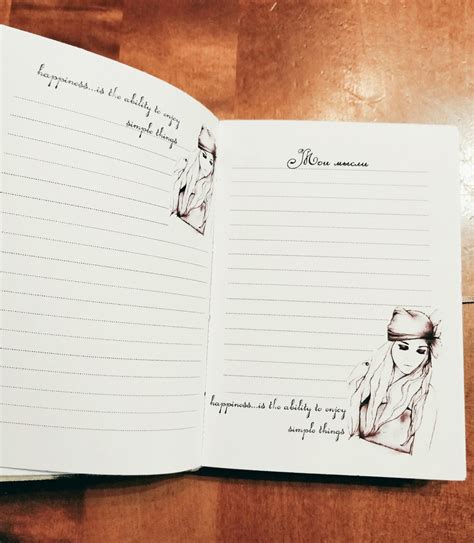 happiness...is the ability to enjoy
simple things
Мои мысли
happiness...is the ability to enjoy
simple things